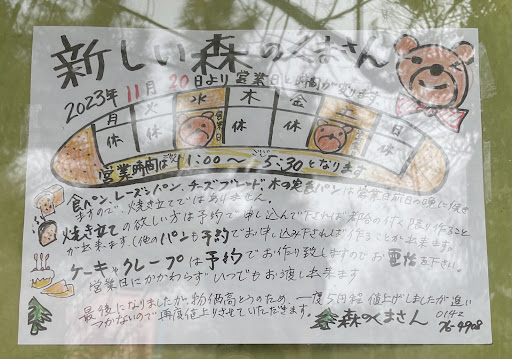 新しい森のくまさん
2023年 11月 20日より 営業日と時間が変ります
月 火 水 木 金 土 日
休 休 営業日 休 休 休
営業時間は 11:00〜5:30となります
食パン、レーズンパン、チーズブレード、木の実食パンは営業日前日の晩に焼き
ますので、焼き立てではありません。
焼き立ての欲しい方は予約で申し込んで下されば
出来ます。(他のパンも予約でお申し込み下さればば作ることが出来ます。
ケーキやクレープは予約でお作り致しますのでお電話を下さい。
営業日にかかわらずいつでもお渡し出来ます
最後になりましたが物価高とうのため、一度5円程値上げしましたが追い
つかないので再度値上りさせていただきます。
森のくまさん
0142
76-4908